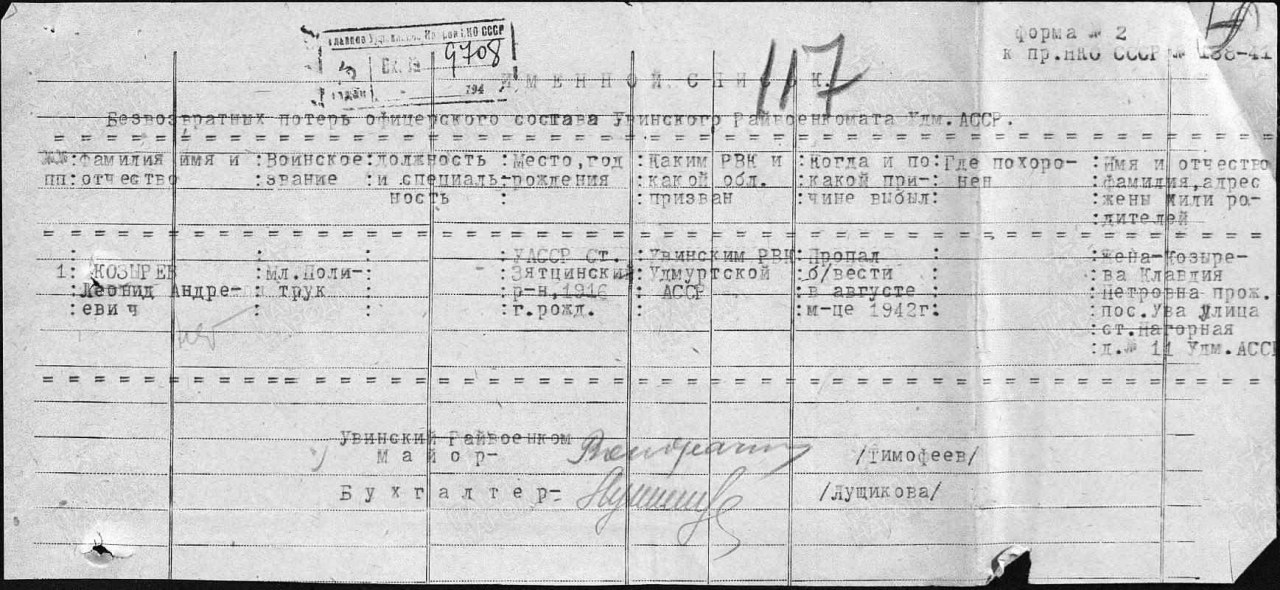 Главное Управление Кадров НКО СССР
форма № 2
Вх. № 9708
к пр.НКО СССР № 138-41
117
194
ИМЕННОЙ СПИСОК.
Безвозвратных потерь офицерского состава Увинского Райвоенкомата Удм.АССР.
№№:фамилия имя и :Воинское:должность :Место,год :Каким РВК и :Когда и по:Где похоро- :Имя и отчество
пп:отчество :звание :и специаль-:рождения :какой обл. :какой при-: нен :фамилия,адрес
ность : :призван :чине выбыл: :жены или ро-
:дителей
: : : :УАССР Ст. :Увинским РВК:Пропал : :Жена-Козыре-
1: КОЗЫРЕВ :Мл.Поли-: :Зятцинский:Удмуртской :б/вести : :ва Клавдия
:Леонид Андре- : трук : :р-н,1916 : АССР :в августе : :Петровна прож.
:евич : : :г.рожд. : :м-це 1942г: :пос.Ува улица
:ст.Нагорная
:д.№ 11 Удм.АССР
Увинский Райвоенком
Майор- /Тимофеев/
Бухгалтер- /Лущикова/